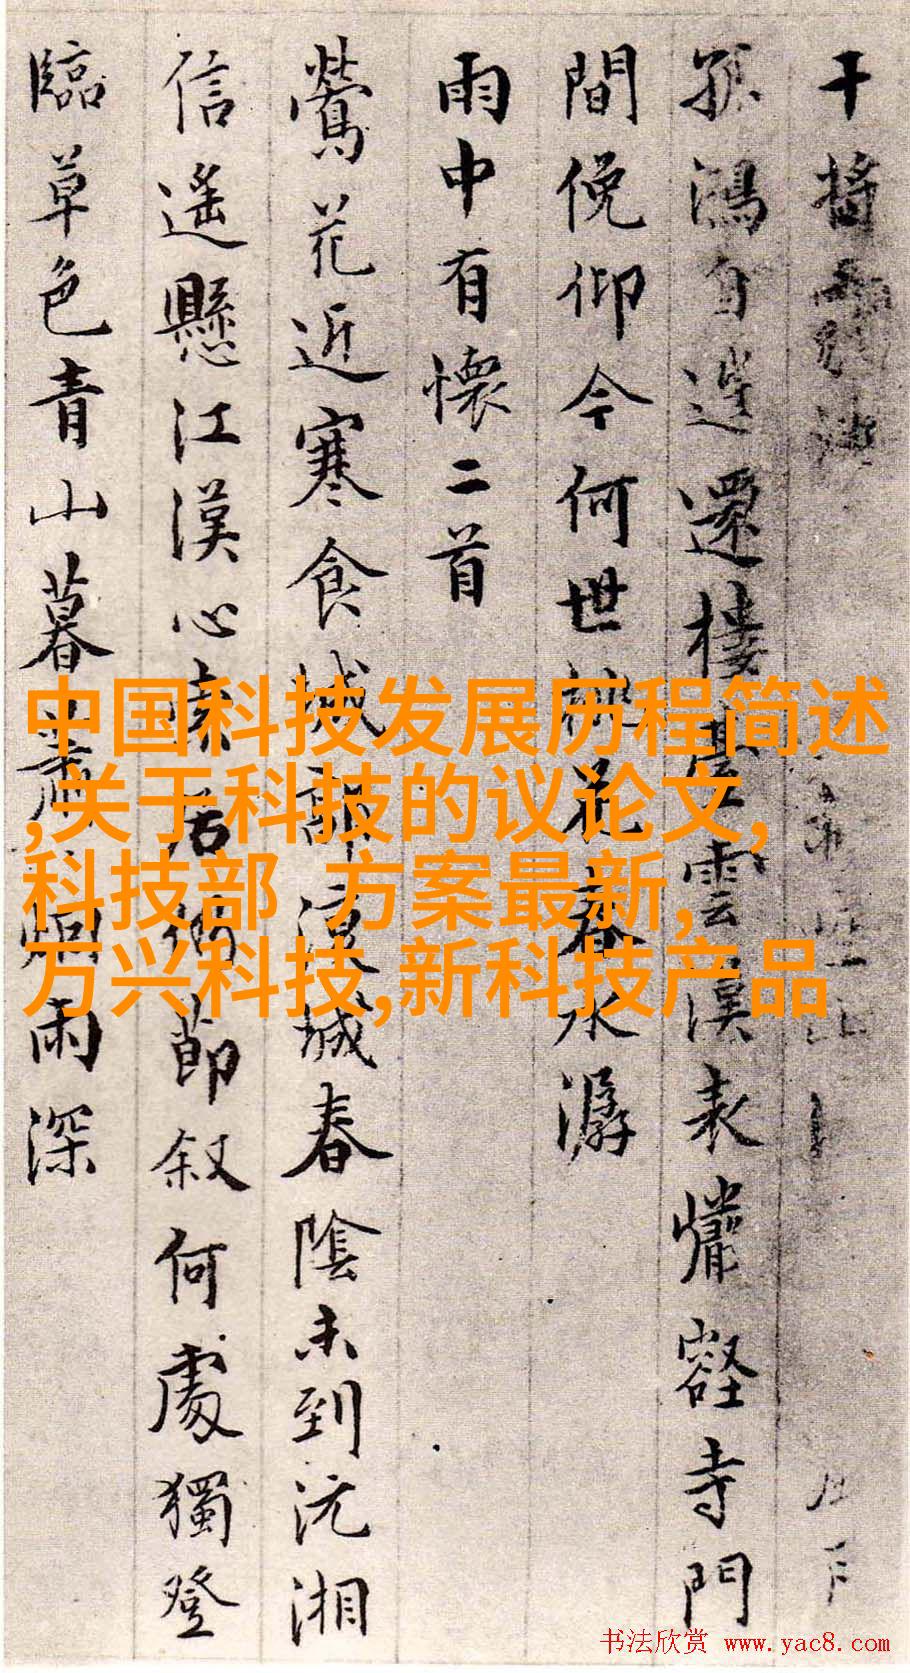 干將
孤鴻自遠還樓臺雲漢表懺磴寺門
間俛仰今何世桃花春水潺
雨中有懷二首
鶯花近寒食城郭深城春陰未到沅湘
信遙懸江漢心 居 節叙何處獨登
臨草色青山暮蕭 烟雨深
中国科技发展历程简述
,关于科技的议论文,
科技部 方案最新,
万兴科技,新科技产品
书法欣赏 www.yac8.com